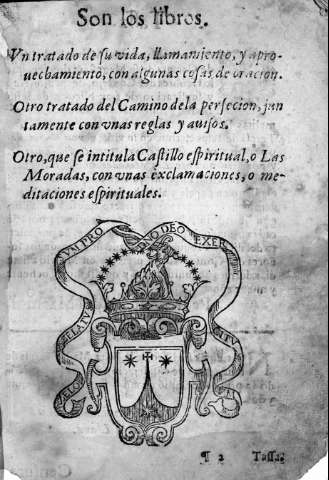 Son los libros.
Vn tratado de su vida, llamamiento, y apro-
uechamiento, con algunas cosas de oracion.
Otro tratado del Camino dela perfecion, jun
tamente con vnas reglas y auisos.
Otro, que se intitula Castillo espiritual, o Las
Moradas, con vnas exclamaciones, o me-
ditaciones espirituales.
ZELO ZELATVS SVM PRO DOMINO DEO EXERCITVVM
¶ 2 Tassa.